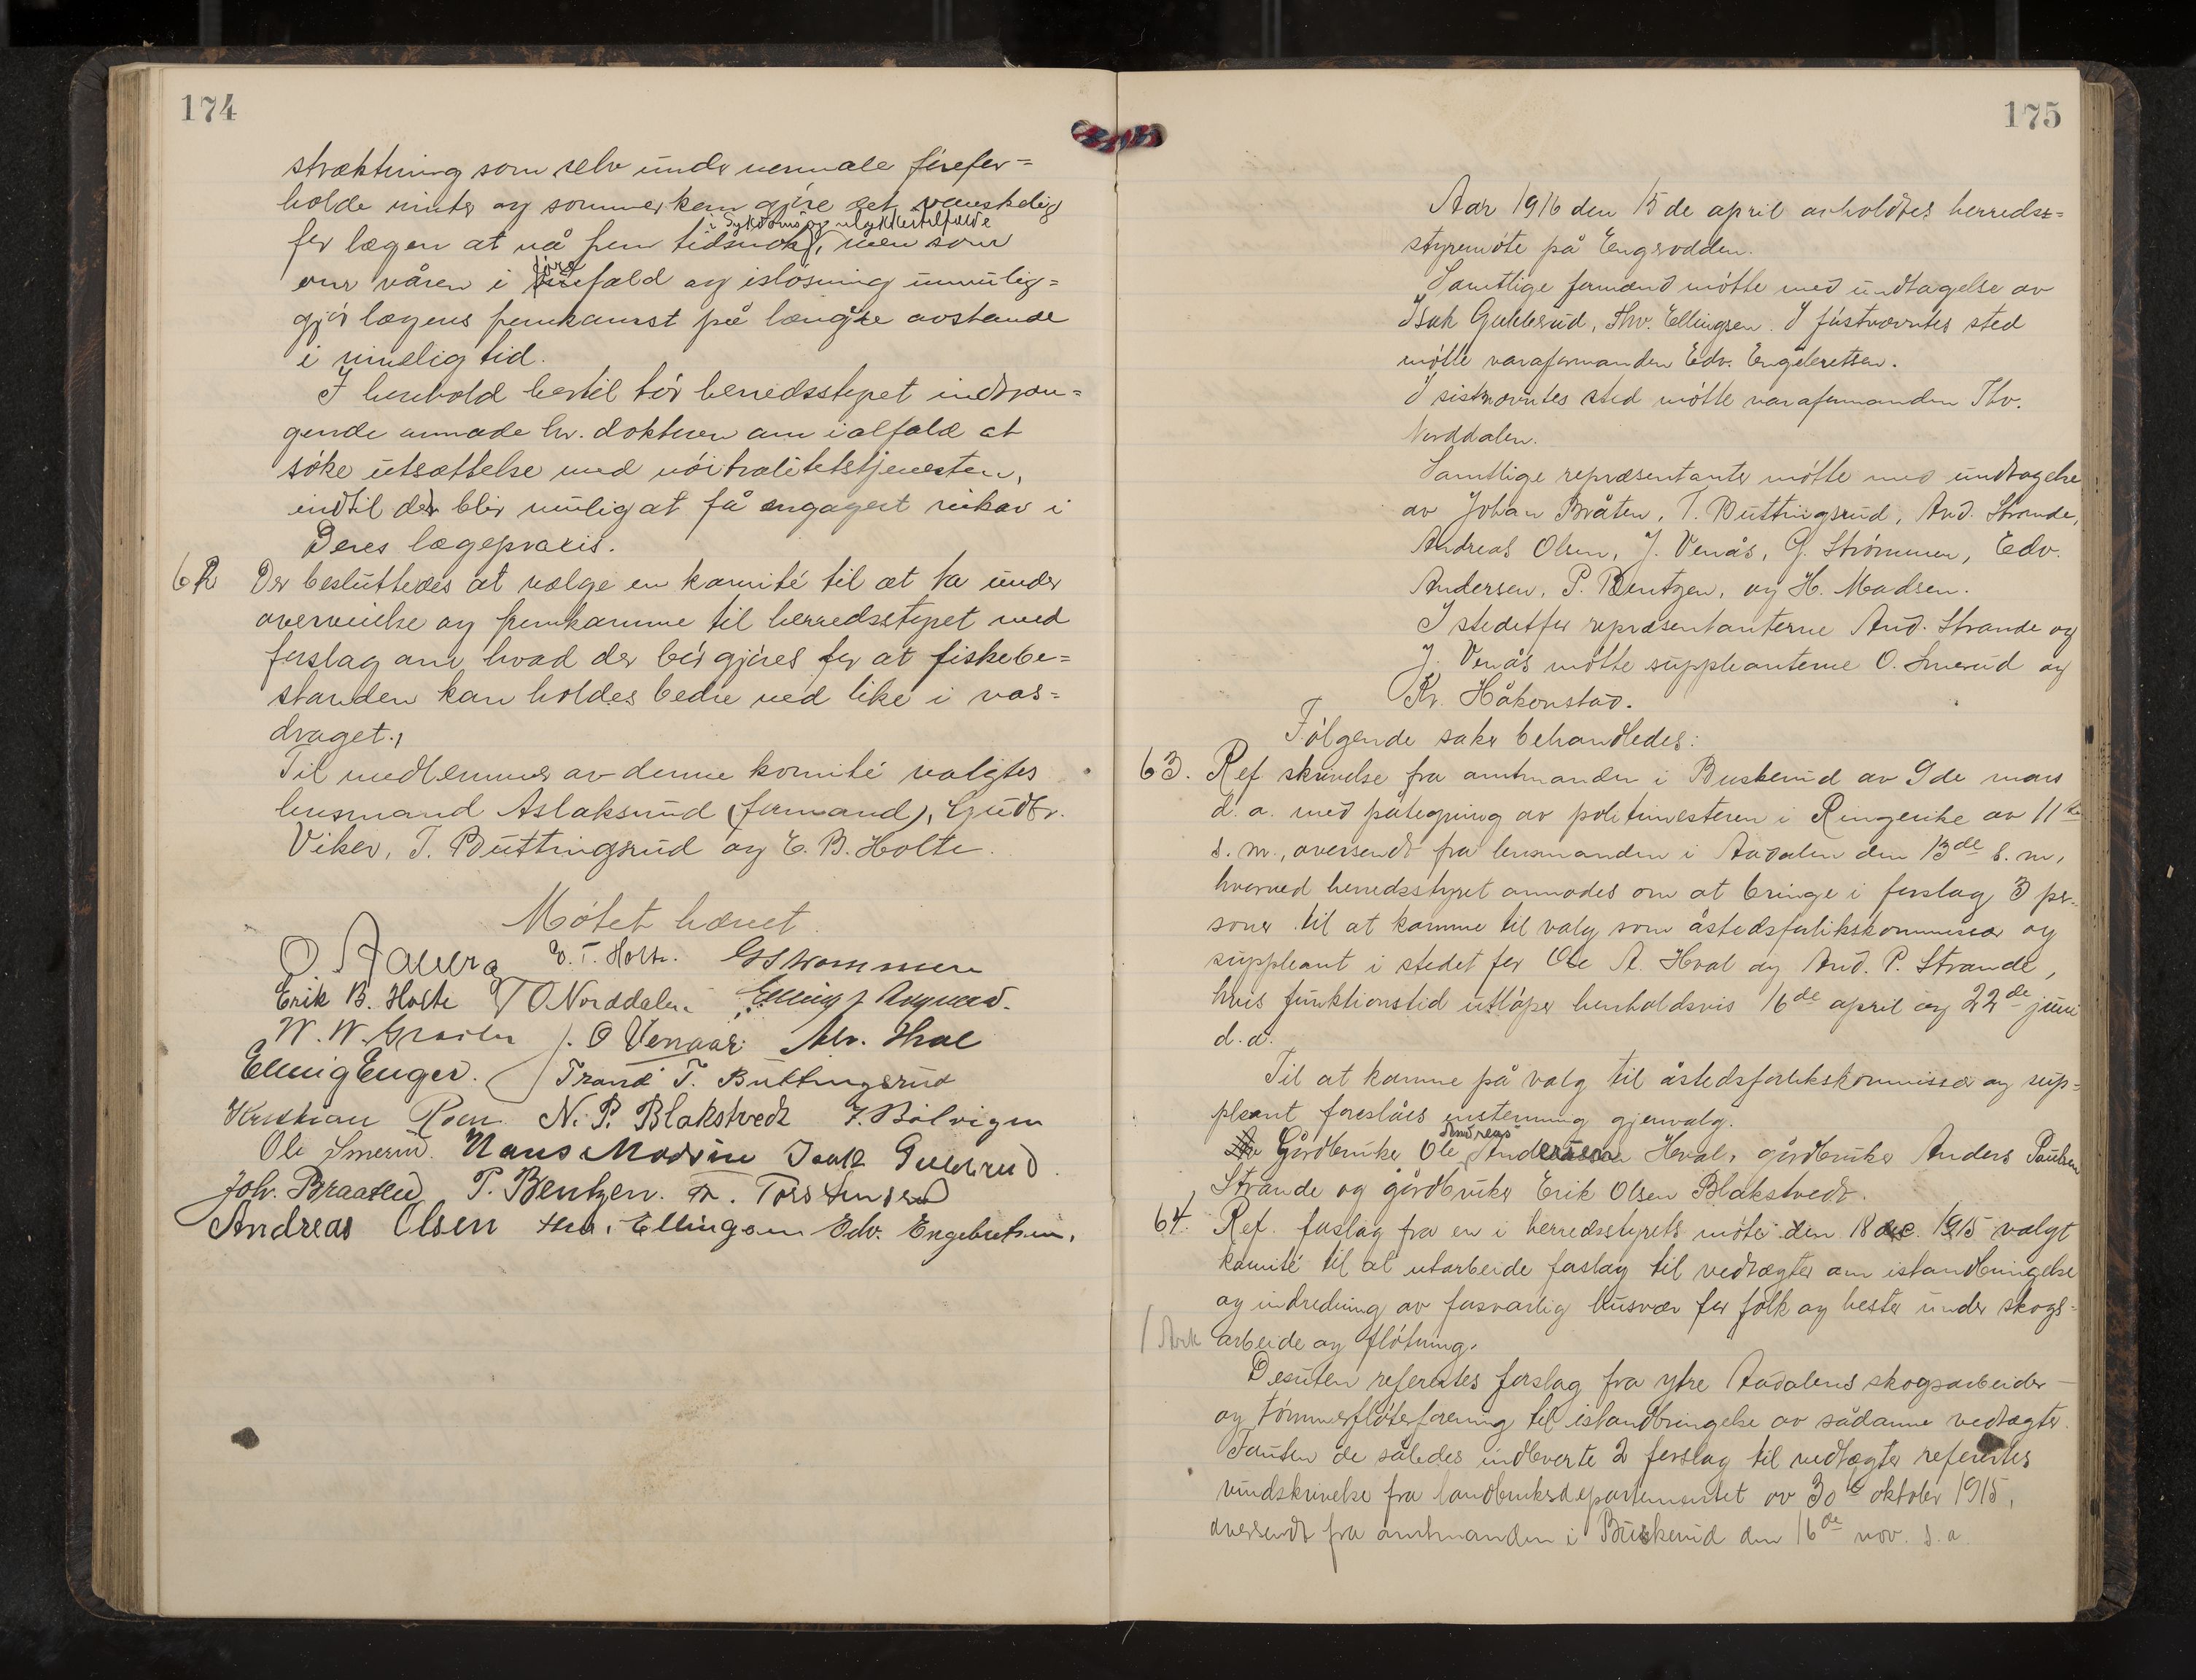 174
strækkning som selv under normale førefor=
holde vinter og sommer kan gjøre det vanskelig
i sykdoms og ulykkestilfælde
for lægen at nå frem tidsnok, men som
føre
om våren i fald og isløsning umulig=
gjør lægens fremkomst på længre avstande
i rimelig tid.
I henhold hertil tør herredsstyret indtræn=
gende anmode hr. doktoren om ialfald at
søke utsættelse med nøitralitetstjenesten,
indtil det blir mulig at få engagert vikar i
Deres lægepraxis.
62 Der besluttedes at vælge en komité til at ta under
overveielse og fremkomme til herredsstyret med
forslag om hvad der bør gjøres for at fiskebe=
standen kan holdes bedre ved like i vas=
draget.
Til medlemmer av denne komité valgtes
lensmand Aslaksrud (formand), Gudbr.
Viker, T. Buttingsrud og E. B. Holte.
Møtet hævet.
O. E. T. Holte. G Strømmen
Erik B. Holte T O Norddalen Elling
J. O Venaas. Alv. Hval
Elling Enger. Trond T. Buttingsrud
Kristian Roen N. P. Blakstvedt J. Bølvigen
Ole Smerud. Hans Madsen Isak Gulderud.
Joh. Braaten P. Bentzen.
Andreas Olsen Thv. Ellingsen Edv. Engebretsen.
175
Aar 1916 den 15de april avholdtes herreds=
styremøte på Engerodden.
Samtlige formænd møtte med undtagelse av
Isak Guldbrud, Thv. Ellingsen. I førstnævntes sted
møtte varaformanden Edv. Engebretsen.
I sistnævntes sted møtte varaformanden Thv.
Norddalen.
Samtlige repræsentanter møtte med undtagelse
av Johan Bråten, T. Buttingsrud, And. Strande,
Andreas Olsen, J. Venås, G. Strømmen, Edv.
Andersen, P. Bentzen, og H. Madsen.
I stedet for repræsentanterne And. Strande og
J. Venås møtte suppleanterne O. Smerud og
Kr. Håkonstad.
Følgende saker behandledes:
63. Ref. skrivelse fra amtmanden i Buskerud av 9de mars
d. a. med påtegning av politimesteren i Ringerike av 11te
s. m., oversendt fra lensmanden i Aadalen den 13de s. m,
hvorved herredsstyret anmodes om at bringe i forslag 3 per-
soner til at komme til valg som åstedsforlikskommissær og
suppleant i stedet for Ole A. Hval og And. P. Strande,
hvis funktionstid utløper henholdsvis 16de april og 22de juni
d. a.
Til at komme på valg til åstedsforlikskommissær og sup=
pleant foreslåes enstemmig gjenvalg.
Andreas
Gårdbruker Ole Hval, gårdbruker Anders Paulsen
Strande og gårdbruker Erik Olsen Blakstvedt.
64. Ref. forslag fra en i herredsstyrets møte den 18 dec. 1915 valgt
komité til at utarbeide forslag til vedtægter om istandbringelse
og indredning av forsvarlig husvær for folk og hester under skogs=
arbeide og fløtning.
Desuten refereetes forslag fra ytre Aadalens skogsarbeider-
og tømmerfløterforening til istandbringelse av sådanne vedtægter.
Foruten de således indleverte 2 forslag til vedtægter refereetes
rundskrivelse fra landbruksdepartementet av 30te oktober 1915,
oversendt fra amtmanden i Buskerud den 16de nov. s. a.